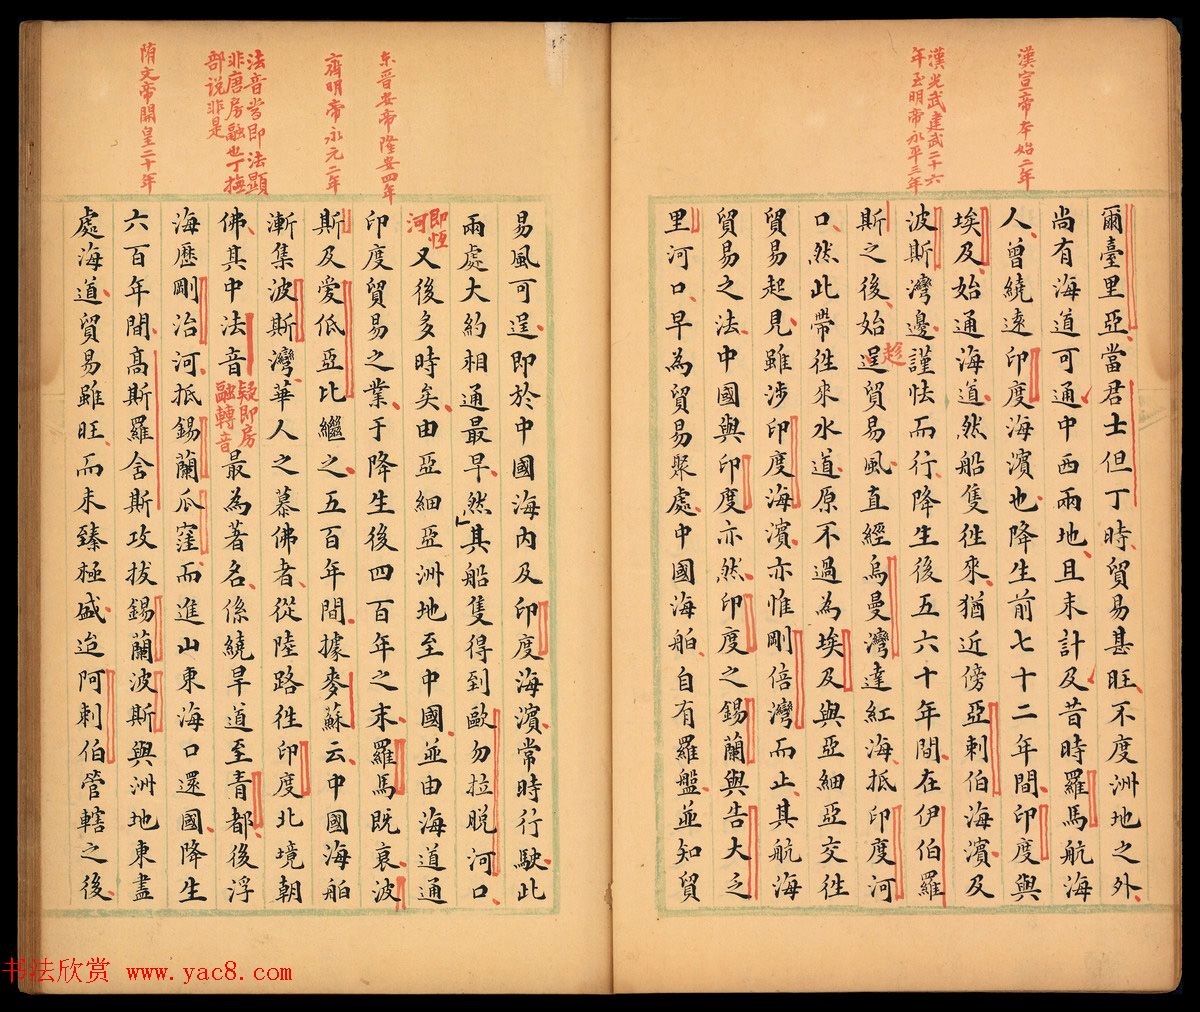 漢宣帝本始二年
漢光武建武二十六
年至明帝永平三年
爾臺里亞當君士但丁時貿易甚旺不度洲地之外
尚有海道可通中西兩地且未計及昔時羅馬航海
人曾繞遠印度海濱也降生前七十二年間印度與
埃及始通海道然船隻往來猶近傍亞剌伯海濱及
波斯灣邊謹怯而行降生後五六十年間在伊伯羅
斯之後始趁逞貿易風直經烏曼灣達紅海抵印度河
口然此帶往來水道原不過為埃及與亞細亞交往
貿易起見雖涉印度海濱亦惟剛倍灣而止其航海
貿易之法中國與印度亦然印度之錫蘭與告大乏
里河口早為貿易聚處中國海舶自有羅盤並知貿
東晉安帝隆安四年
齊明帝永元二年
法音當即法顯
非唐房融也丁撫
部說非是
隋文帝開皇二十年
易風可逞即於中國海內及印度海濱常時行駛此
兩處大約相通最早然其船隻得到歐勿拉脫河口
即恆
河
又後多時矣由亞細亞洲地至中國並由海道通
印度貿易之業于降生後四百年之末羅馬既衰波
斯及愛低亞比繼之五百年間據麥蘇云中國海舶
漸集波斯灣華人之慕佛者從陸路往印度北境朝
佛其中法音
疑即房
融轉音
最為著名係繞旱道至青都後浮
海歷剛治河抵錫蘭瓜窪而進山東海口還國降生
六百年間高斯羅舍斯攻拔錫蘭波斯與洲地東盡
處海道貿易雖旺而未臻極盛迨阿剌伯管轄之後
书法欣赏 www.yac8.com